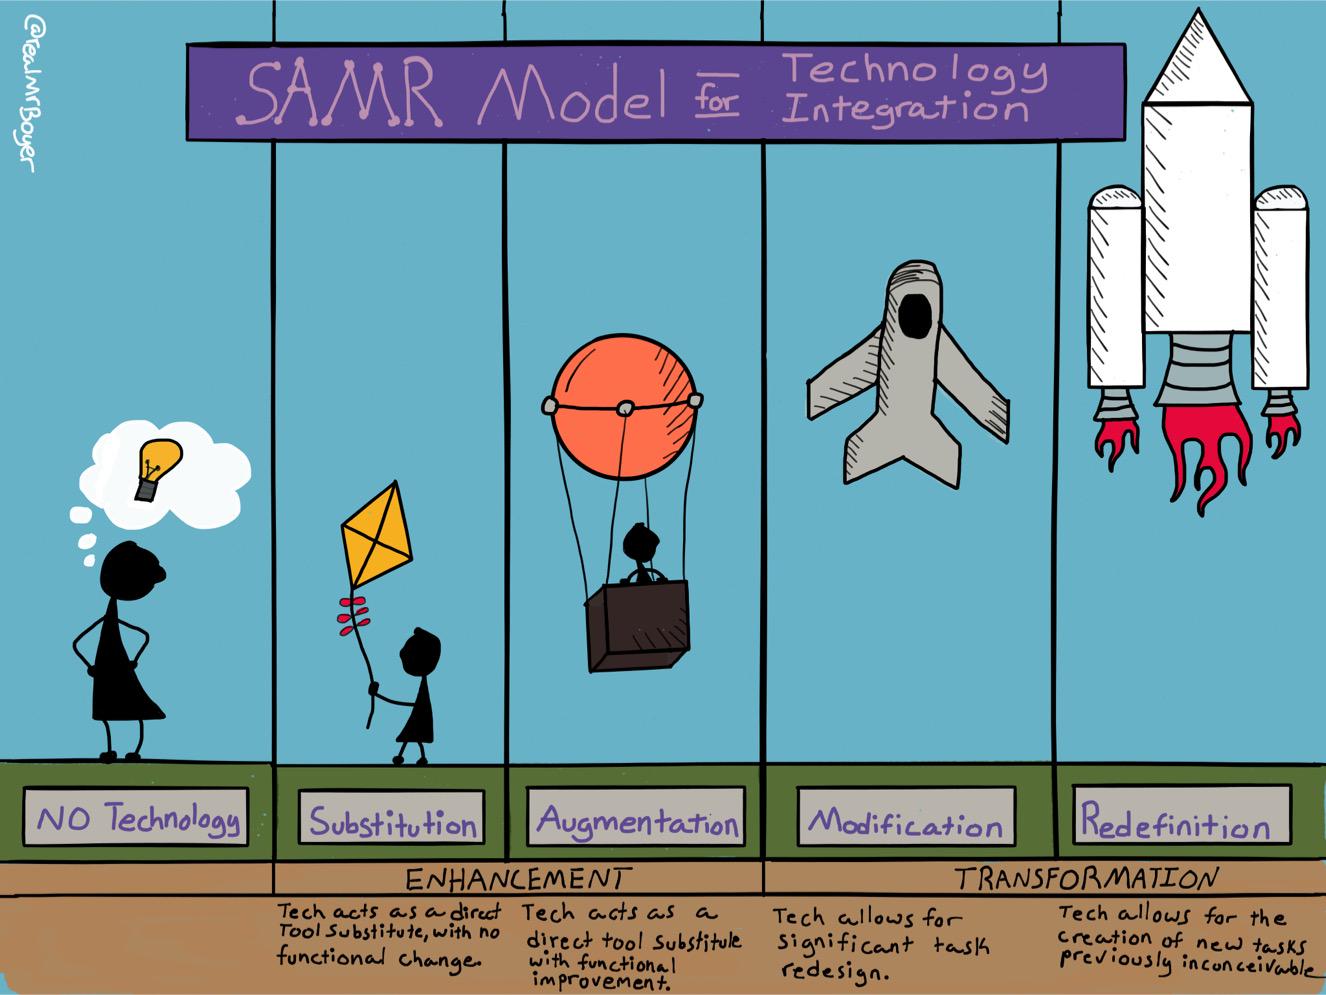 @realMrBoyer
SAMR Model for Technology
Integration
NO Technology
Substitution
Augmentation
Modification
Redefinition
ENHANCEMENT
TRANSFORMATION
Tech acts as a direct
Tool Substitute, with no
functional change.
Tech acts as a
direct tool Substitute
with functional
improvement.
Tech allows for
significant task
redesign.
Tech allows for the
creation of new tasks
previously inconceivable